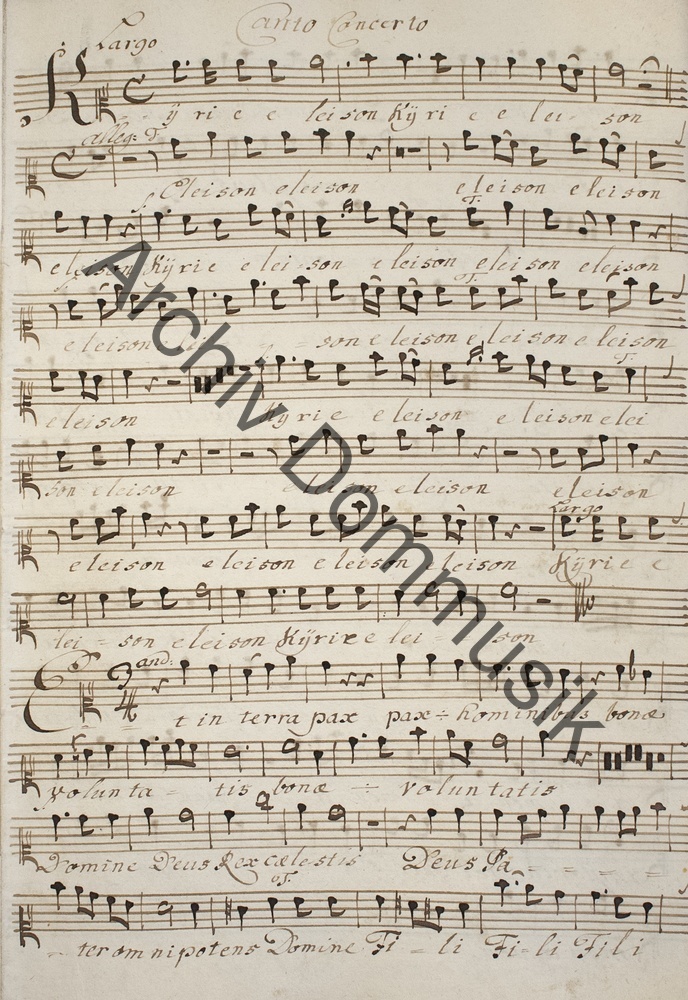 Canto Concerto
Largo
Kÿ ri e e leison Kÿri e e lei - son
alleg: T.
Eleison eleison eleison eleison
T.
eleison Kÿrie elei-son eleison eleison eleison
T.
eleison elei - - son eleison eleison eleison
T.
eleison Kÿrie eleison eleison elei
son eleison eleison eleison eleison
Largo
eleison eleison eleison eleison Kÿrie e
lei - son eleison Kÿrie e lei - son
and:
3/4
Et in terra pax pax ÷ hominibus bonæ
volunta - tis bonæ ÷ voluntatis
Domine Deus Rex cælestis Deus Pa - - - -
T.
- ter omnipotens Domine Fi - li Fi-li Fili
Archiv Dommusik